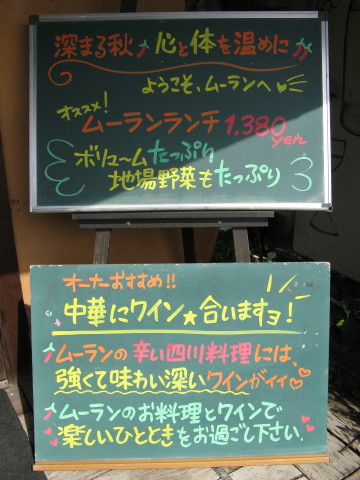 深まる秋 心と体を温めに
ようこそ、ムーランへ
オススメ!
ムーランランチ 1,380
yen
ボリュームたっぷり
地場野菜もたっぷり
オーナーおすすめ!!
中華にワイン★合いますョ!
ムーランの辛い四川料理には、
強くて味わい深いワインがイイ
ムーランのお料理とワインで
楽しいひとときをお過ごし下さい.